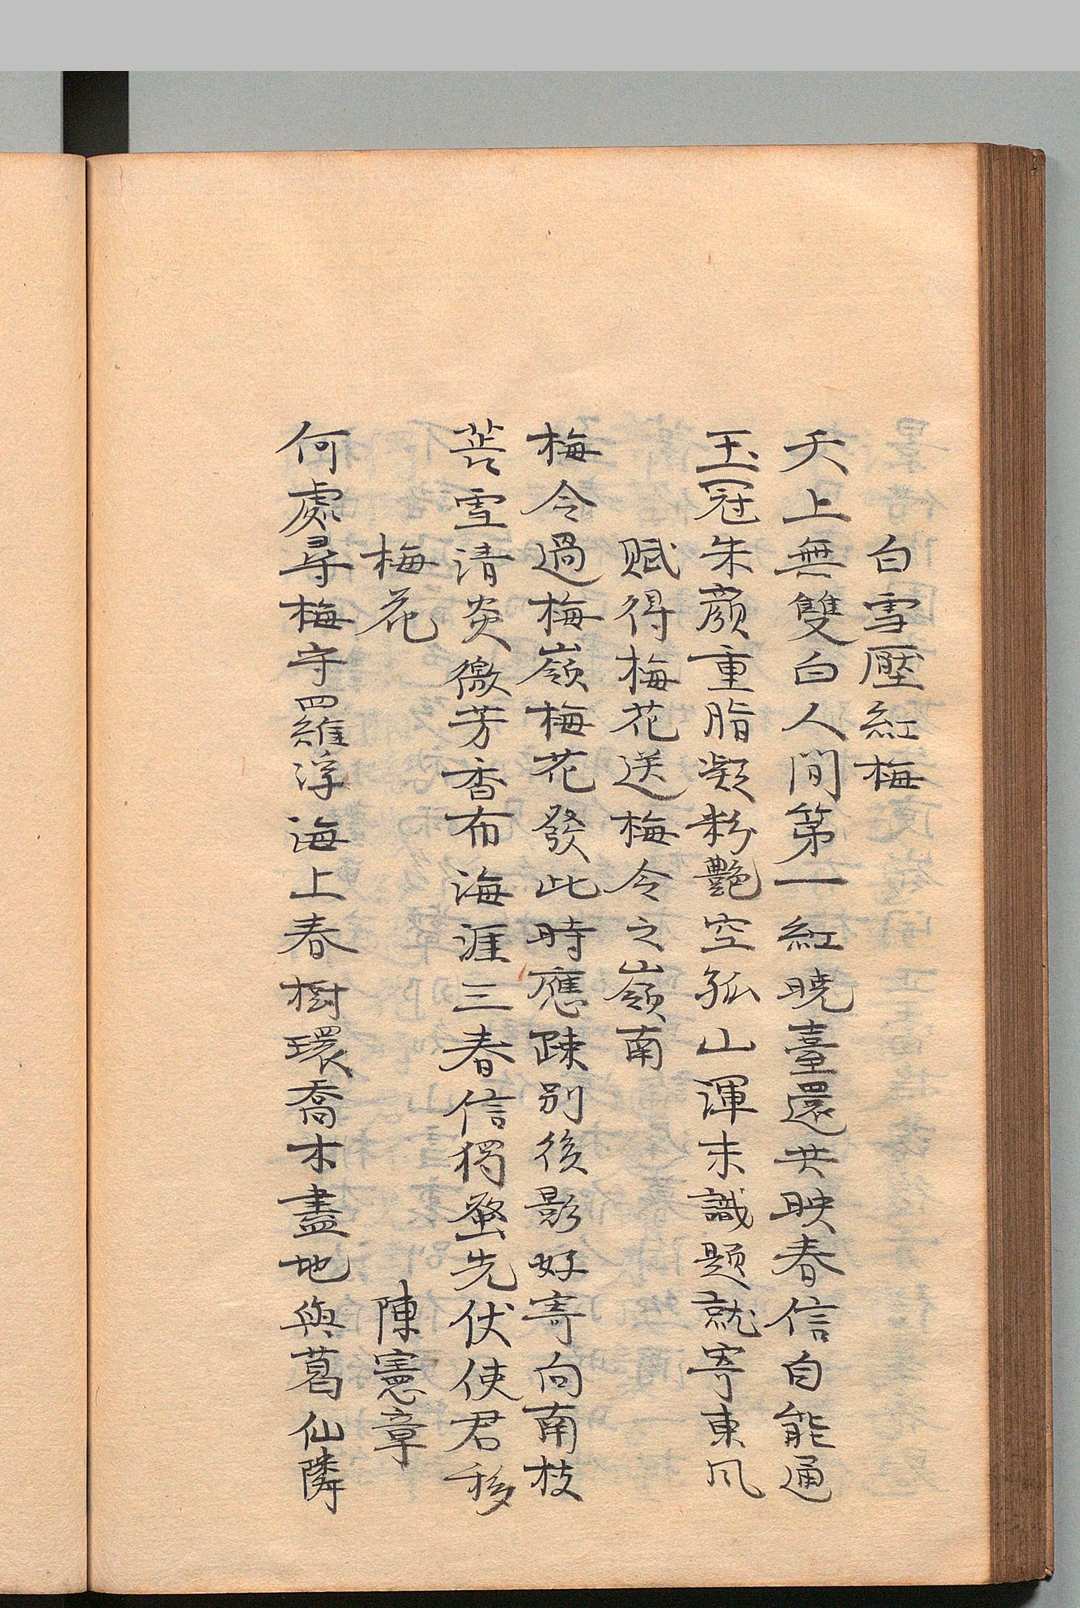 白雪壓紅梅
天上無雙白人間第一紅曉臺還共映春信自能通
玉冠朱顏重脂凝粉艷空孤山渾未識題就寄東風
賦得梅花送梅令之嶺南
梅令過梅嶺梅花發此時應疎別後影好寄向南枝
苦雪清炎徼芳香布海涯三春信獨發先伏使君移
梅花 陳憲章
何處尋梅守羅浮海上春樹環喬木盡地與葛仙隣